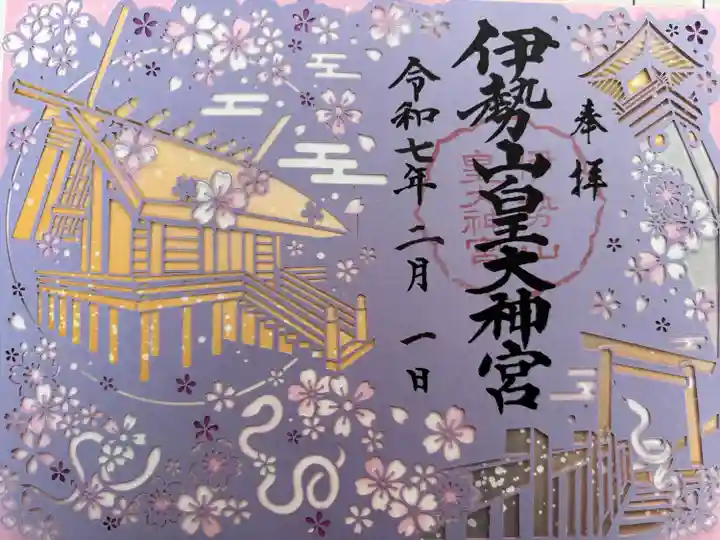 奉拝
伊勢山皇大神宮
伊勢山
皇大神宮
令和七年 二月 一日